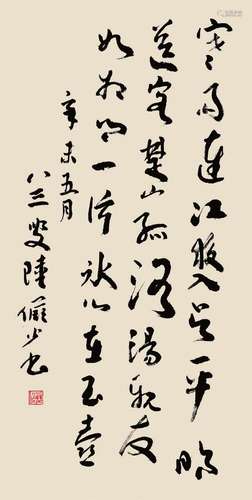 寒雨連江夜入吳平明
送客楚山孤洛陽親友
如相問一片冰心在玉壺
辛未五月
八三叟陸儼少書